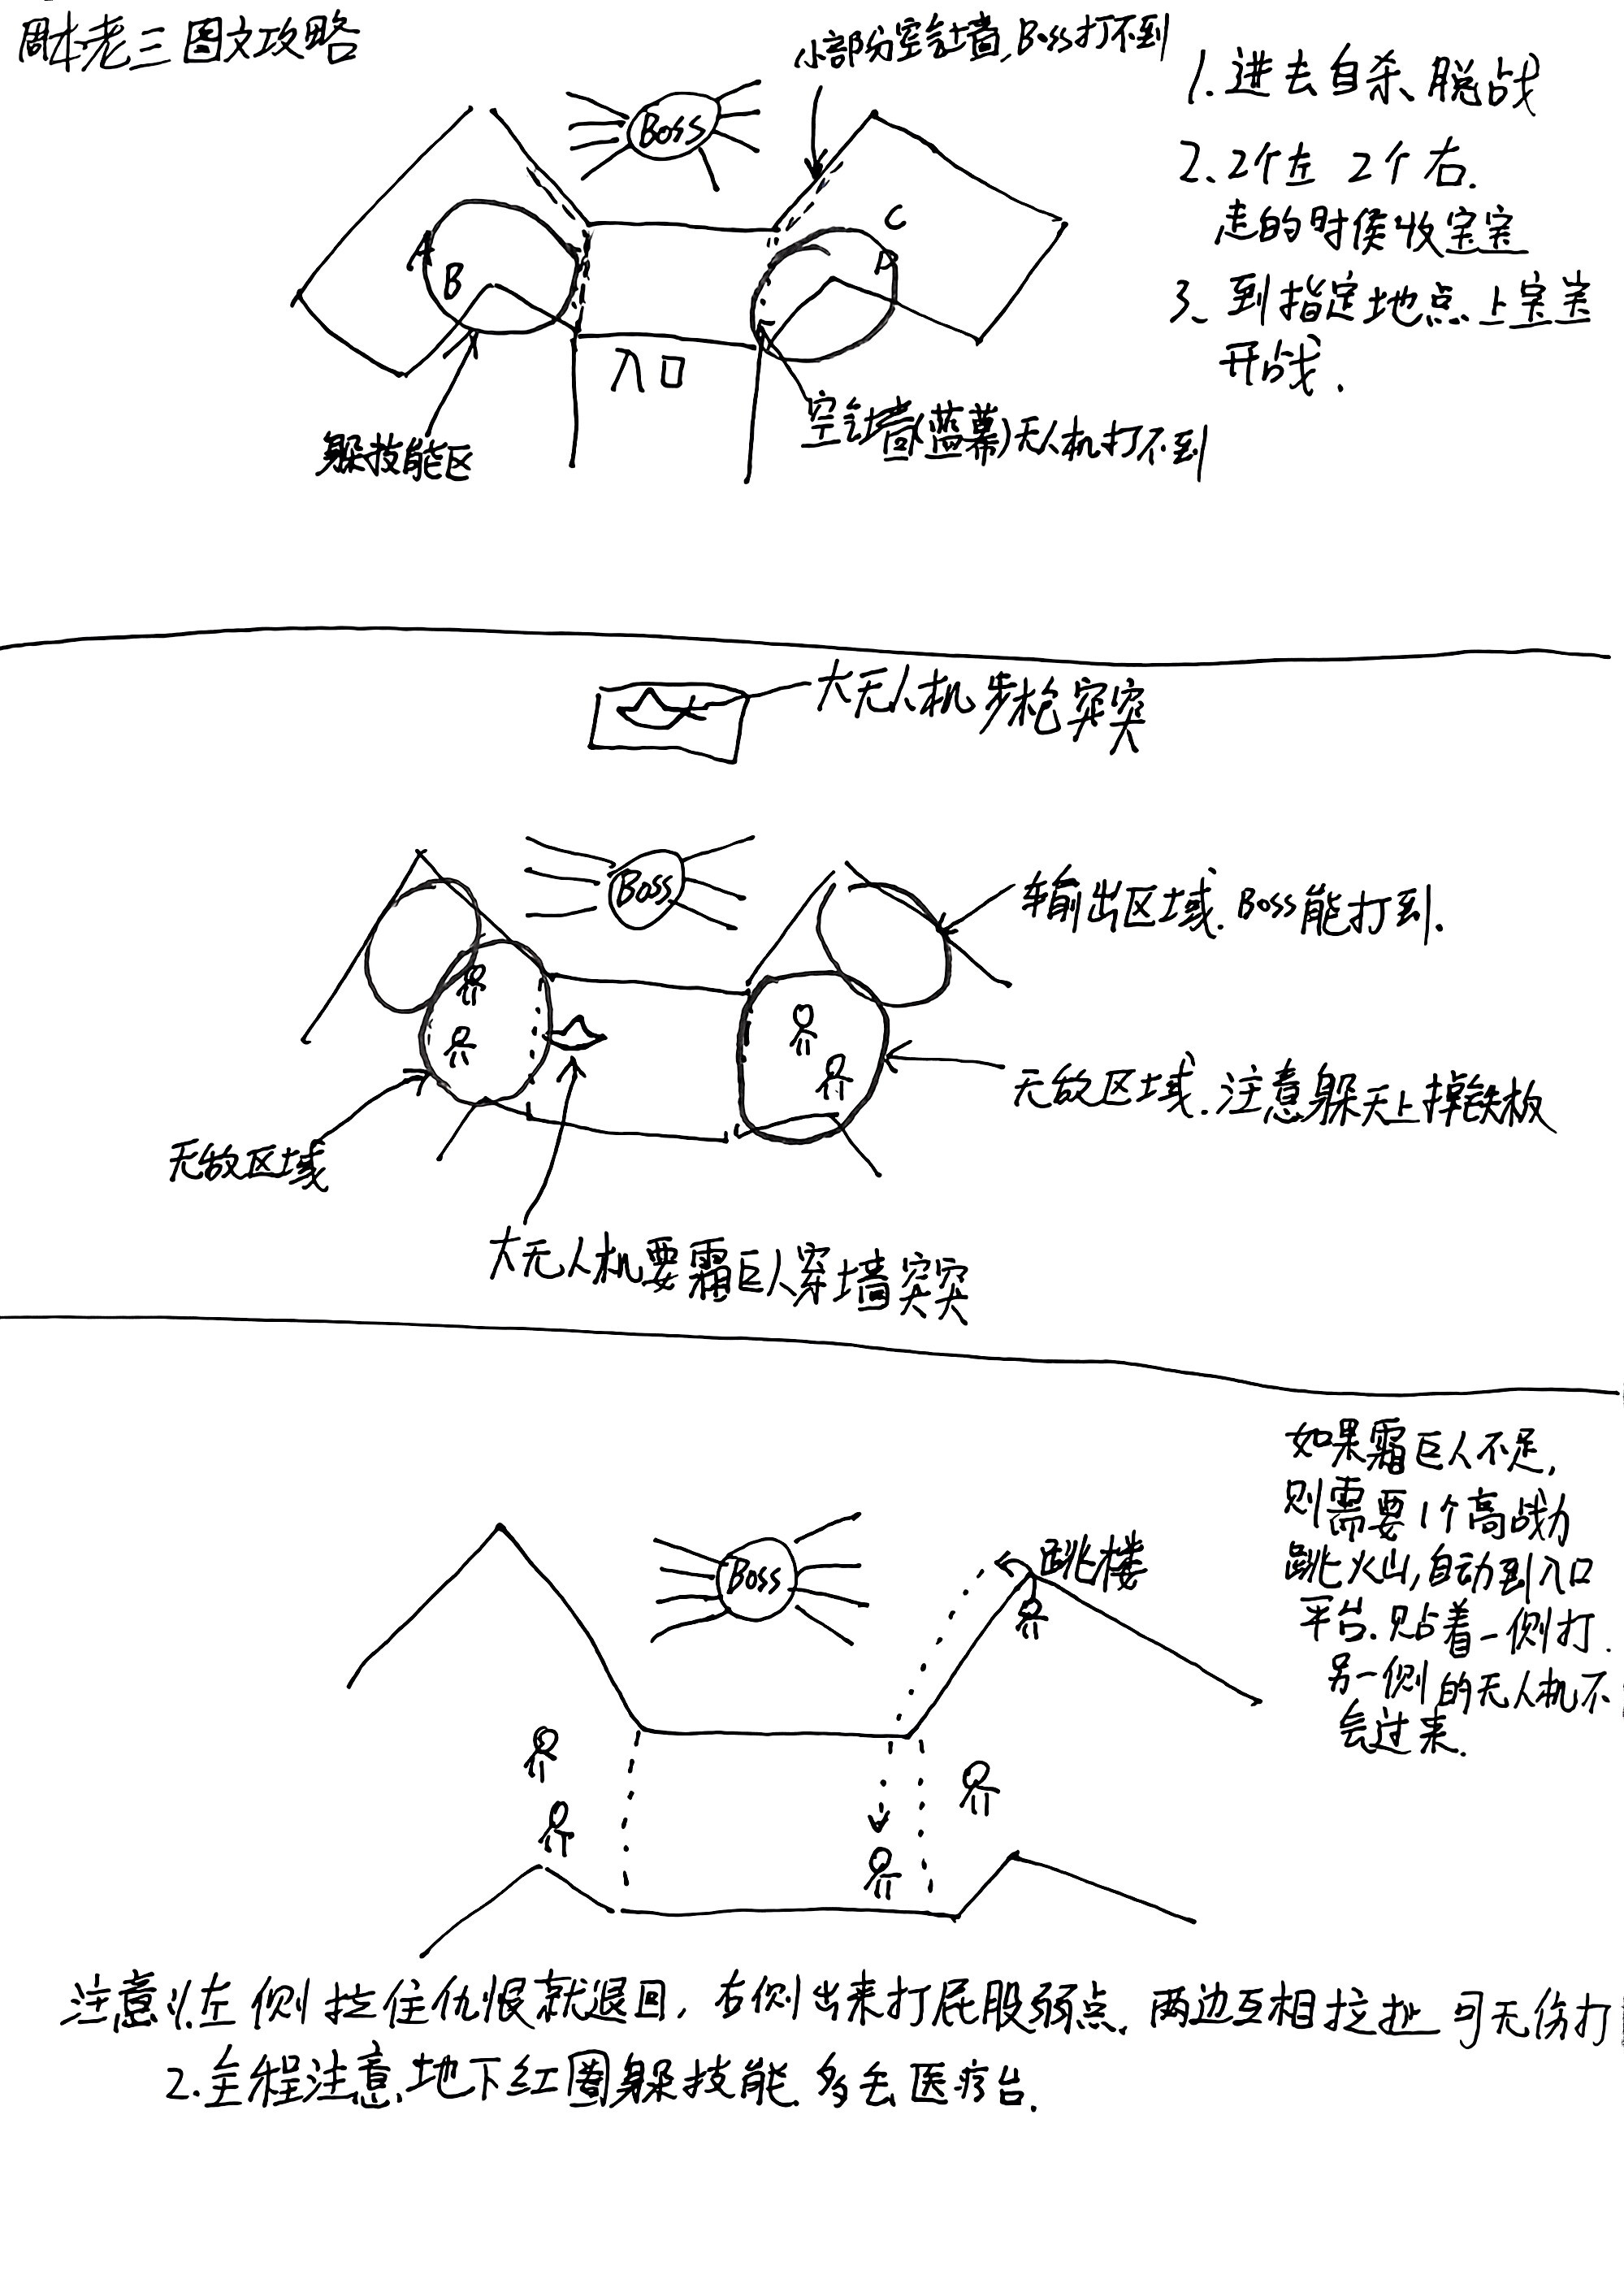 周本老三图文攻略
小部分空气墙,Boss打不到
1.进去自杀、脱战
2、2个左 2个右.
走的时候收宝宝
3、到指定地点上宝宝
开战.
Boss
A
B
C
D
入口
躲技能区
空气墙(蓝幕)无人机打不到
大无人机步枪突突
Boss
输出区域.Boss能打到.
无敌区域.注意躲天上掉铁板
无敌区域
大无人机要霜巨人穿墙突突
如果霜巨人不足,
则需要1个高战力
跳火山,自动到入口
平台.贴着一侧打.
另一侧的无人机不
会过来.
Boss
跳楼
注意:1.左侧拉住仇恨就退回,右侧出来打屁股弱点.两边互相拉扯 可无伤打
2.全程注意地下红圈躲技能.多丢医疗台.